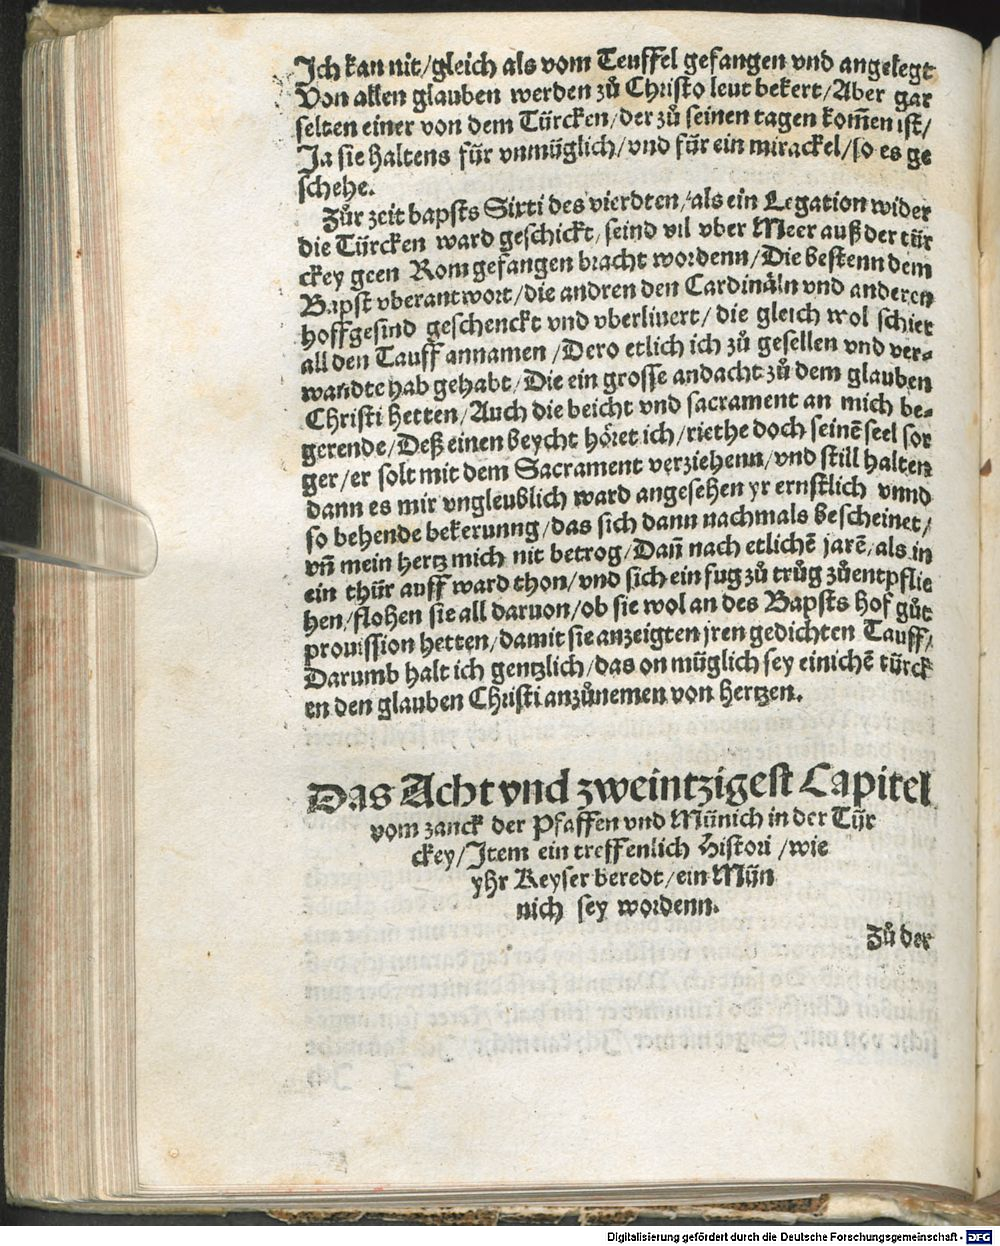 Ich kan nit/gleich als vom Teuffel gefangen vnd angelegt
Von allen glauben werden zů Christo leut bekert/Aber gar
selten einer von dem Türcken/der zů seinen tagen kom̃en ist/
Ja sie haltens für vnmüglich/vnd für ein mirackel/so es ge
schehe.
Zůr zeit bapsts Sixti des vierdten/als ein Legation wider
die Türcken ward geschickt/seind vil vber Meer auß der tür
ckey geen Rom gefangen bracht wordenn/Die bestenn dem
Bapst vberantwort/die andren den Cardinäln vnd anderen
hoffgesind geschenckt vnd vberliuert/die gleich wol schier
all den Tauff annamen/Dero etlich ich zů gesellen vnd ver-
wandte hab gehabt/Die ein grosse andacht zů dem glauben
Christi hetten/Auch die beicht vnd sacrament an mich be-
gerende/Deß einen beycht höret ich/riethe doch seinẽ seel sor
ger/er solt mit dem Sacrament verziehenn/vnd still halten
dann es mir vngleublich ward angesehen yr ernstlich vnnd
so behende bekerunng/das sich dann nachmals bescheinet/
vñ mein hertz mich nit betrog/Dañ nach etlichẽ jarẽ/als in
ein thür auff ward thon/vnd sich ein fug zů trůg zůentpflie
hen/flohen sie all daruon/ob sie wol an des Bapsts hof gůt
prouission hetten/damit sie anzeigten jren gedichten Tauff/
Darumb halt ich gentzlich/das on müglich sey einichẽ türck
en den glauben Christi anzůnemen von hertzen.
Das Acht vnd zweintzigest Capitel
vom zanck der Pfaffen vnd Münich in der Tür
ckey/Item ein treffenlich Histori/wie
yhr Keyser beredt/ein Mün
nich sey wordenn.
Zů der
Digitalisierung gefördert durch die Deutsche Forschungsgemeinschaft - DFG